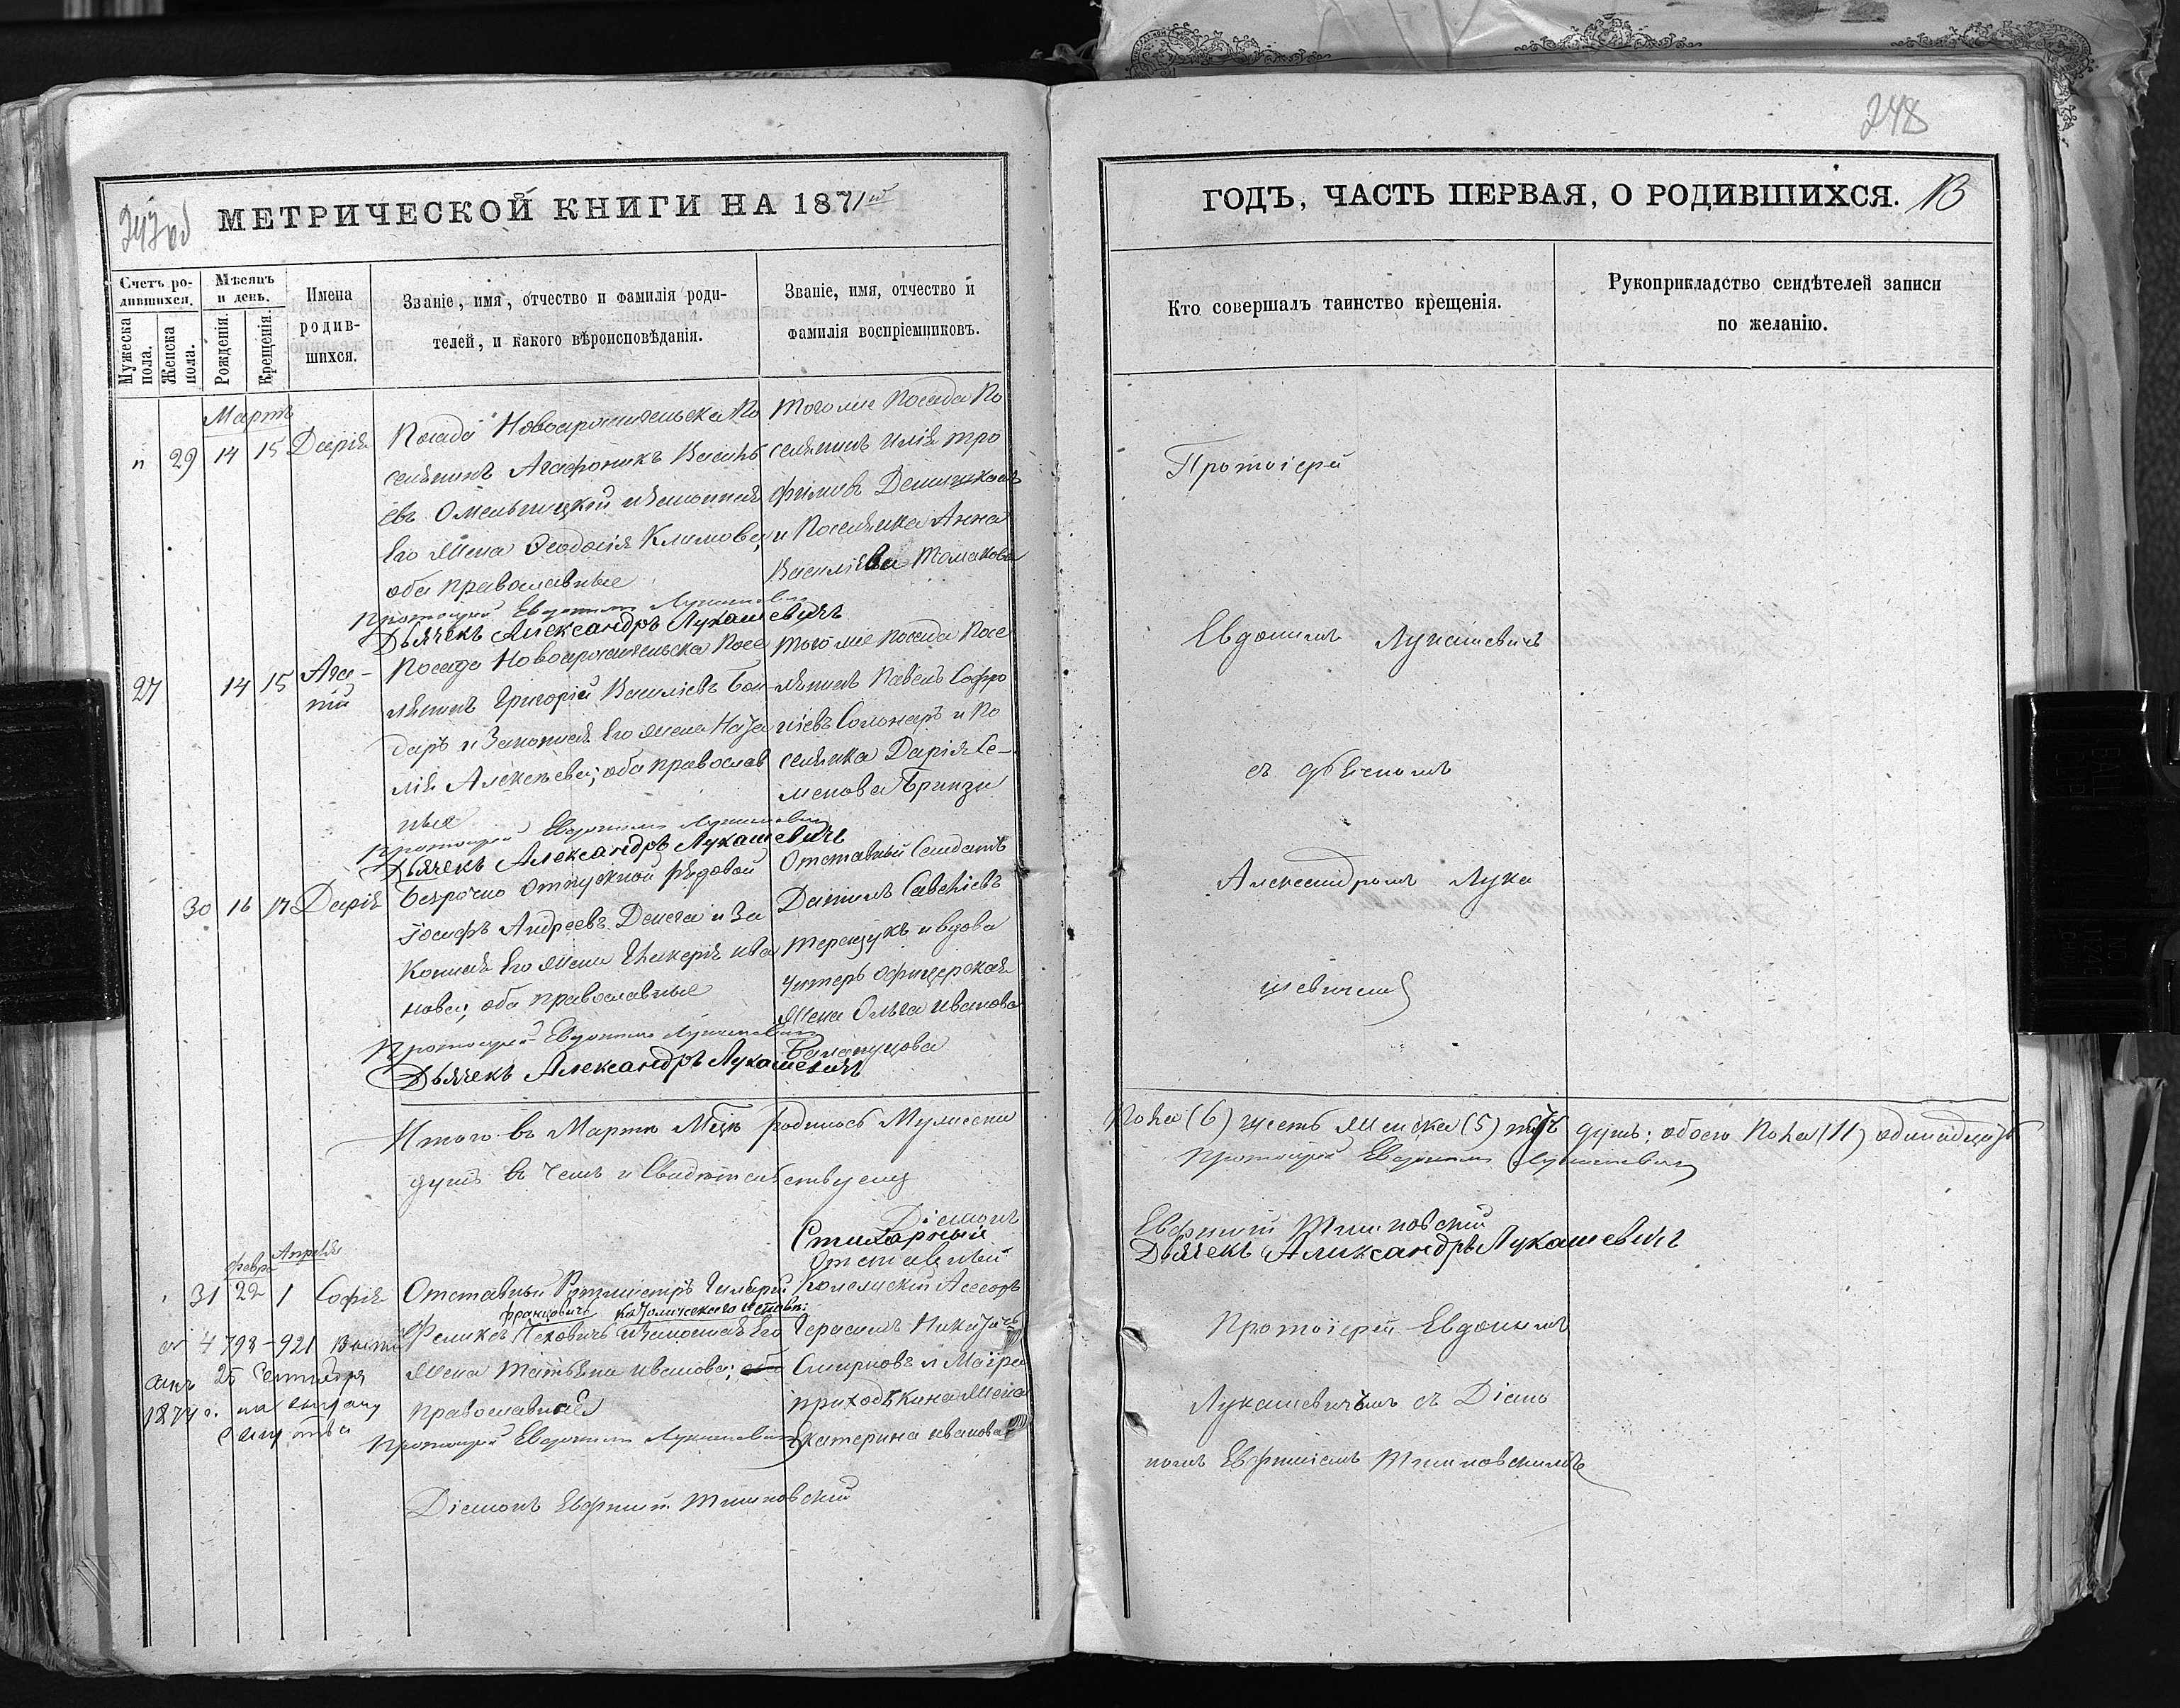 248
247 об
МЕТРИЧЕСКОЙ КНИГИ НА 1871й
Счетъ ро-
дившихся.
Мужеска пола.
Женска пола.
Мѣсяцъ
и день.
Рожденія.
Крещенія.
Имена
родив-
шихся.
Званіе, имя, отчество и фамилія роди-
телей, и какого вѣроисповѣданія.
Званіе, имя, отчество и
фамилія воспріемниковъ.
Мартъ
29 14 15 Дарія
Посада Новоархангельска По
селянинъ Агафоникъ Василь
евъ Омельницкій и законная
Его жена Ѳеодосія Климова,
оба православные
Тогоже Посада По
селянинъ Илія Тро
фимовъ
и Поселянка Анна
Василіева Томакова
Протоіерей Евдокимъ Лукашевичъ
Дьячекъ Александръ Лукашевичъ
27 14 15 Ага-
пій
Посада Новоархангельска Посе
лянинъ Григорій Василіевъ Бон
даръ и Законная Его жена Ната
лія Алексѣева; оба православ
ные
Тогоже посада Посе
лянинъ Павелъ Софро
ніевъ Солонаръ и По
селянка Дарія Се-
менова
Протоіерей Евдокимъ Лукашевичъ
Дьячекъ Александръ Лукашевичъ
30 16 17 Дарія
Безрочно отпускной рядовой
Іосифъ Андреевъ Денега и За
конная Его жена Гликерія Ива
нова; оба православные
Отставный Солдатъ
Даніилъ Савеліевъ
Терещукъ и вдова
Унтеръ офицерская
Жена Ольга Иванова
Протоіерей Евдокимъ Лукашевичъ
Дьячекъ Александръ Лукашевичъ
Итого въ Мартѣ Мцѣ родилось Мужеска
душъ въ чемъ и Свидѣтельствуемъ
Діаконъ
Стихарный
Февр Апрѣля
31 22 1 Софія
Отставный Ротмистръ
Францовичъ католическаго исповѣ:
Феликсъ Леховичъ и законная Его
Жена Татьяна Иванова; оба
православная
Отставный
Колежскій Асесоръ
Герасимъ Никитичъ
Смирновъ и Маіра
приходькина жена
Екатерина Иванова
4793-921
25 Сентября
1874 г. на
Протоіерей Евдокимъ Лукашевичъ
Діаконъ Евфимій Тишковскій
ГОДЪ, ЧАСТЬ ПЕРВАЯ, О РОДИВШИХСЯ.
13
Кто совершалъ таинство крещенія.
Рукоприкладство свидѣтелей записи
по желанію.
Протоіерей
Евдокимъ Лукашевичъ
съ дьячкомъ
Александромъ Лука
шевичемъ
Пола (6) шесть Женска (5) пять душъ; обоего Пола (11) одинадцать
Протоіерей Евдокимъ Лукашевичъ
Евфимій Тишковскій
Дьячекъ Александръ Лукашевичъ
Протоіерей Евдокимъ
Лукашевичемъ съ Діако
номъ Евфиміемъ Тишковскимъ